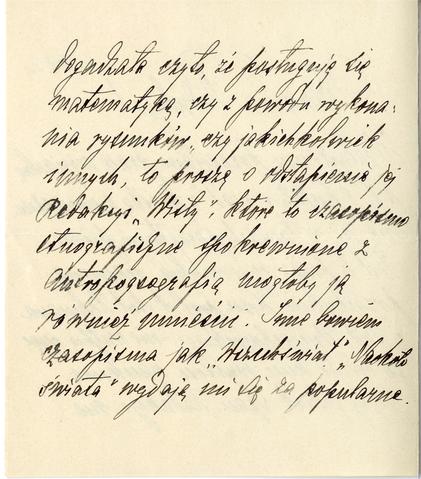 dogadzała czyto, że posługuję się
matematyką, czy z powodu wykona-
nia rysunków, czy jakichkolwiek
innych, to proszę o odstąpienie jej
Redakcyi „Wisły", które to czasopismo
etnograficzne spokrewnione z
Antropogeografią mogłoby ją
również umieścić. Inne bowiem
czasopisma jak „Wszechświat" „Naokoło
świata" wydają mi się za popularne.